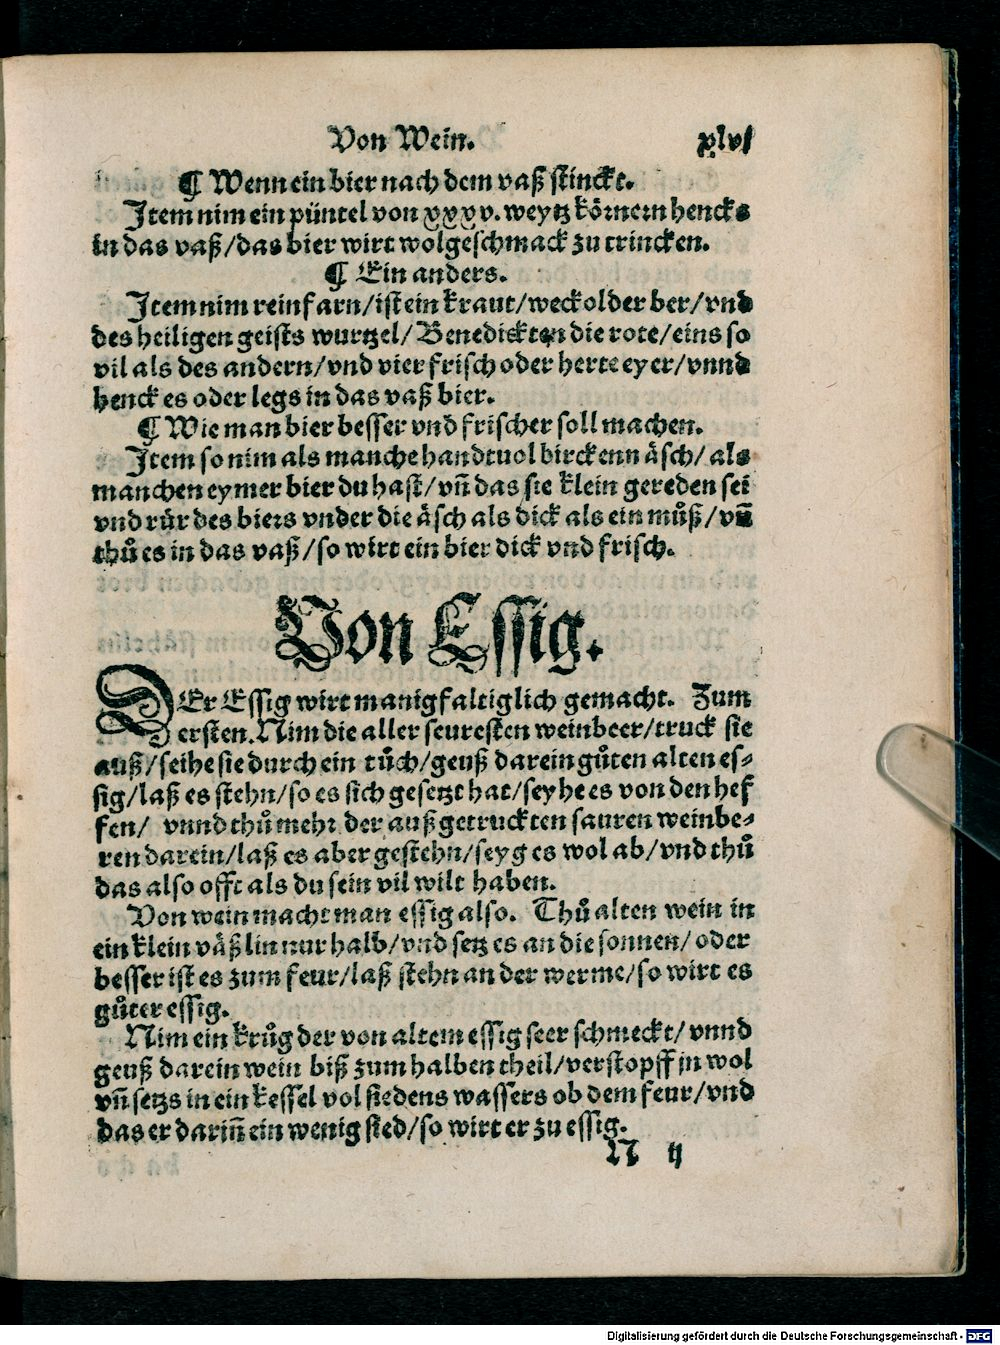 Von Wein. xlvj
¶ Wenn ein bier nach dem vaß stinckt.
Item nim ein püntel von xxxv. weytz körnern hencks
in das vaß/das bier wirt wolgeschmack zu trincken.
¶ Ein anders.
Item nim reinfarn/ist ein kraut/weckolder ber/vnd
des heiligen geists wurtzel/Benedickten die rote/eins so
vil als des andern/vnd vier frisch oder herte eyer/vnnd
henck es oder legs in das vaß bier.
¶ Wie man bier besser vnd frischer soll machen.
Item so nim als manche handtuol birckenn äsch/als
manchen eymer bier du hast/vn̄ das sie klein gereden sei
vnd rür des biers vnder die äsch als dick als ein můß/vn̄
thů es in das vaß/so wirt ein bier dick vnd frisch.
Von Essig.
DEr Essig wirt manigfaltiglich gemacht. Zum
ersten. Nim die aller seuresten weinbeer/truck sie
auß/seihe sie durch ein tůch/geuß darein gůten alten es⸗
sig/laß es stehn/so es sich gesetzt hat/seyhe es von den hef
fen/ vnnd thů mehr der außgetruckten sauren weinbe⸗
ren darein/laß es aber gestehn/seyg es wol ab/vnd thů
das also offt als du sein vil wilt haben.
Von wein macht man essig also. Thů alten wein in
ein klein väßlin nur halb/vnd setz es an die sonnen/oder
besser ist es zum feur/laß stehn an der werme/so wirt es
gůter essig.
Nim ein krůg der von altem essig seer schmeckt/vnnd
geuß darein wein biß zum halben theil/verstopff jn wol
vn̄ setzs in ein kessel vol siedens wassers ob dem feur/vnd
das er darin̄ ein wenig sied/so wirt er zu essig.
N ij
Digitalisierung gefördert durch die Deutsche Forschungsgemeinschaft - DFG